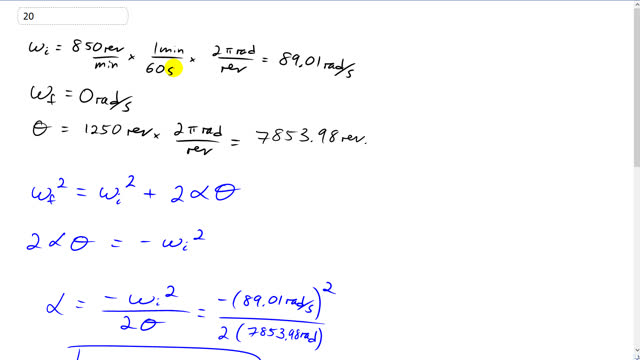 20
ωi = 850 rev/min × 1min/60s × 2π rad/rev = 89.01 rad/s
ωf = 0 rad/s
θ = 1250 rev × 2π rad/rev = 7853.98 rev.
ωf² = ωi² + 2αθ
2αθ = -ωi²
α = -ωi²/2θ = -(89.01 rad/s)²/2(7853.98 rad)